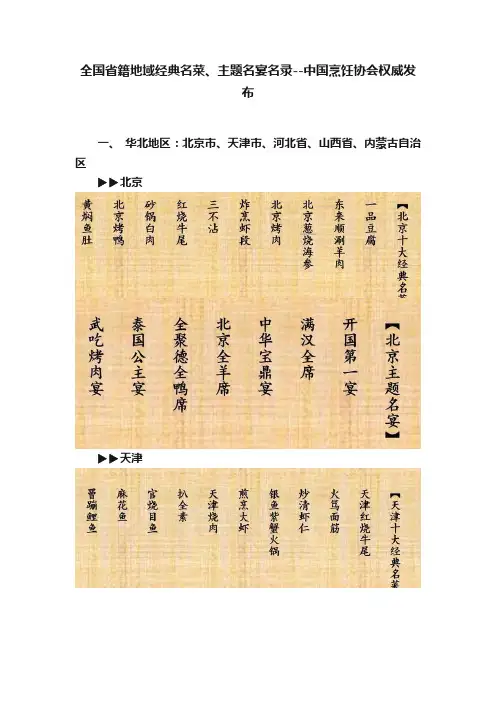 全国省籍地域经典名菜、主题名宴名录--中国烹饪协会权威发
布
一、 华北地区：北京市、天津市、河北省、山西省、内蒙古自治
区
▶▶北京
【北京十大经典名菜
一品豆腐
东来顺涮羊肉
北京葱烧海参
北京烤肉
炸烹虾段
三不沾
红烧牛尾
砂锅白肉
北京烤鸭
黄焖鱼肚
【北京主题名宴】
开国第一宴
满汉全席
中华宝鼎宴
北京全羊席
全聚德全鸭席
泰国公主宴
武吃烤肉宴
▶▶天津
【天津十大经典名菜
天津红烧牛尾
火笃面筋
炒清虾仁
银鱼紫蟹火锅
煎烹大虾
天津烧肉
扒全素
官烧目鱼
麻花鱼
罾蹦鲤鱼